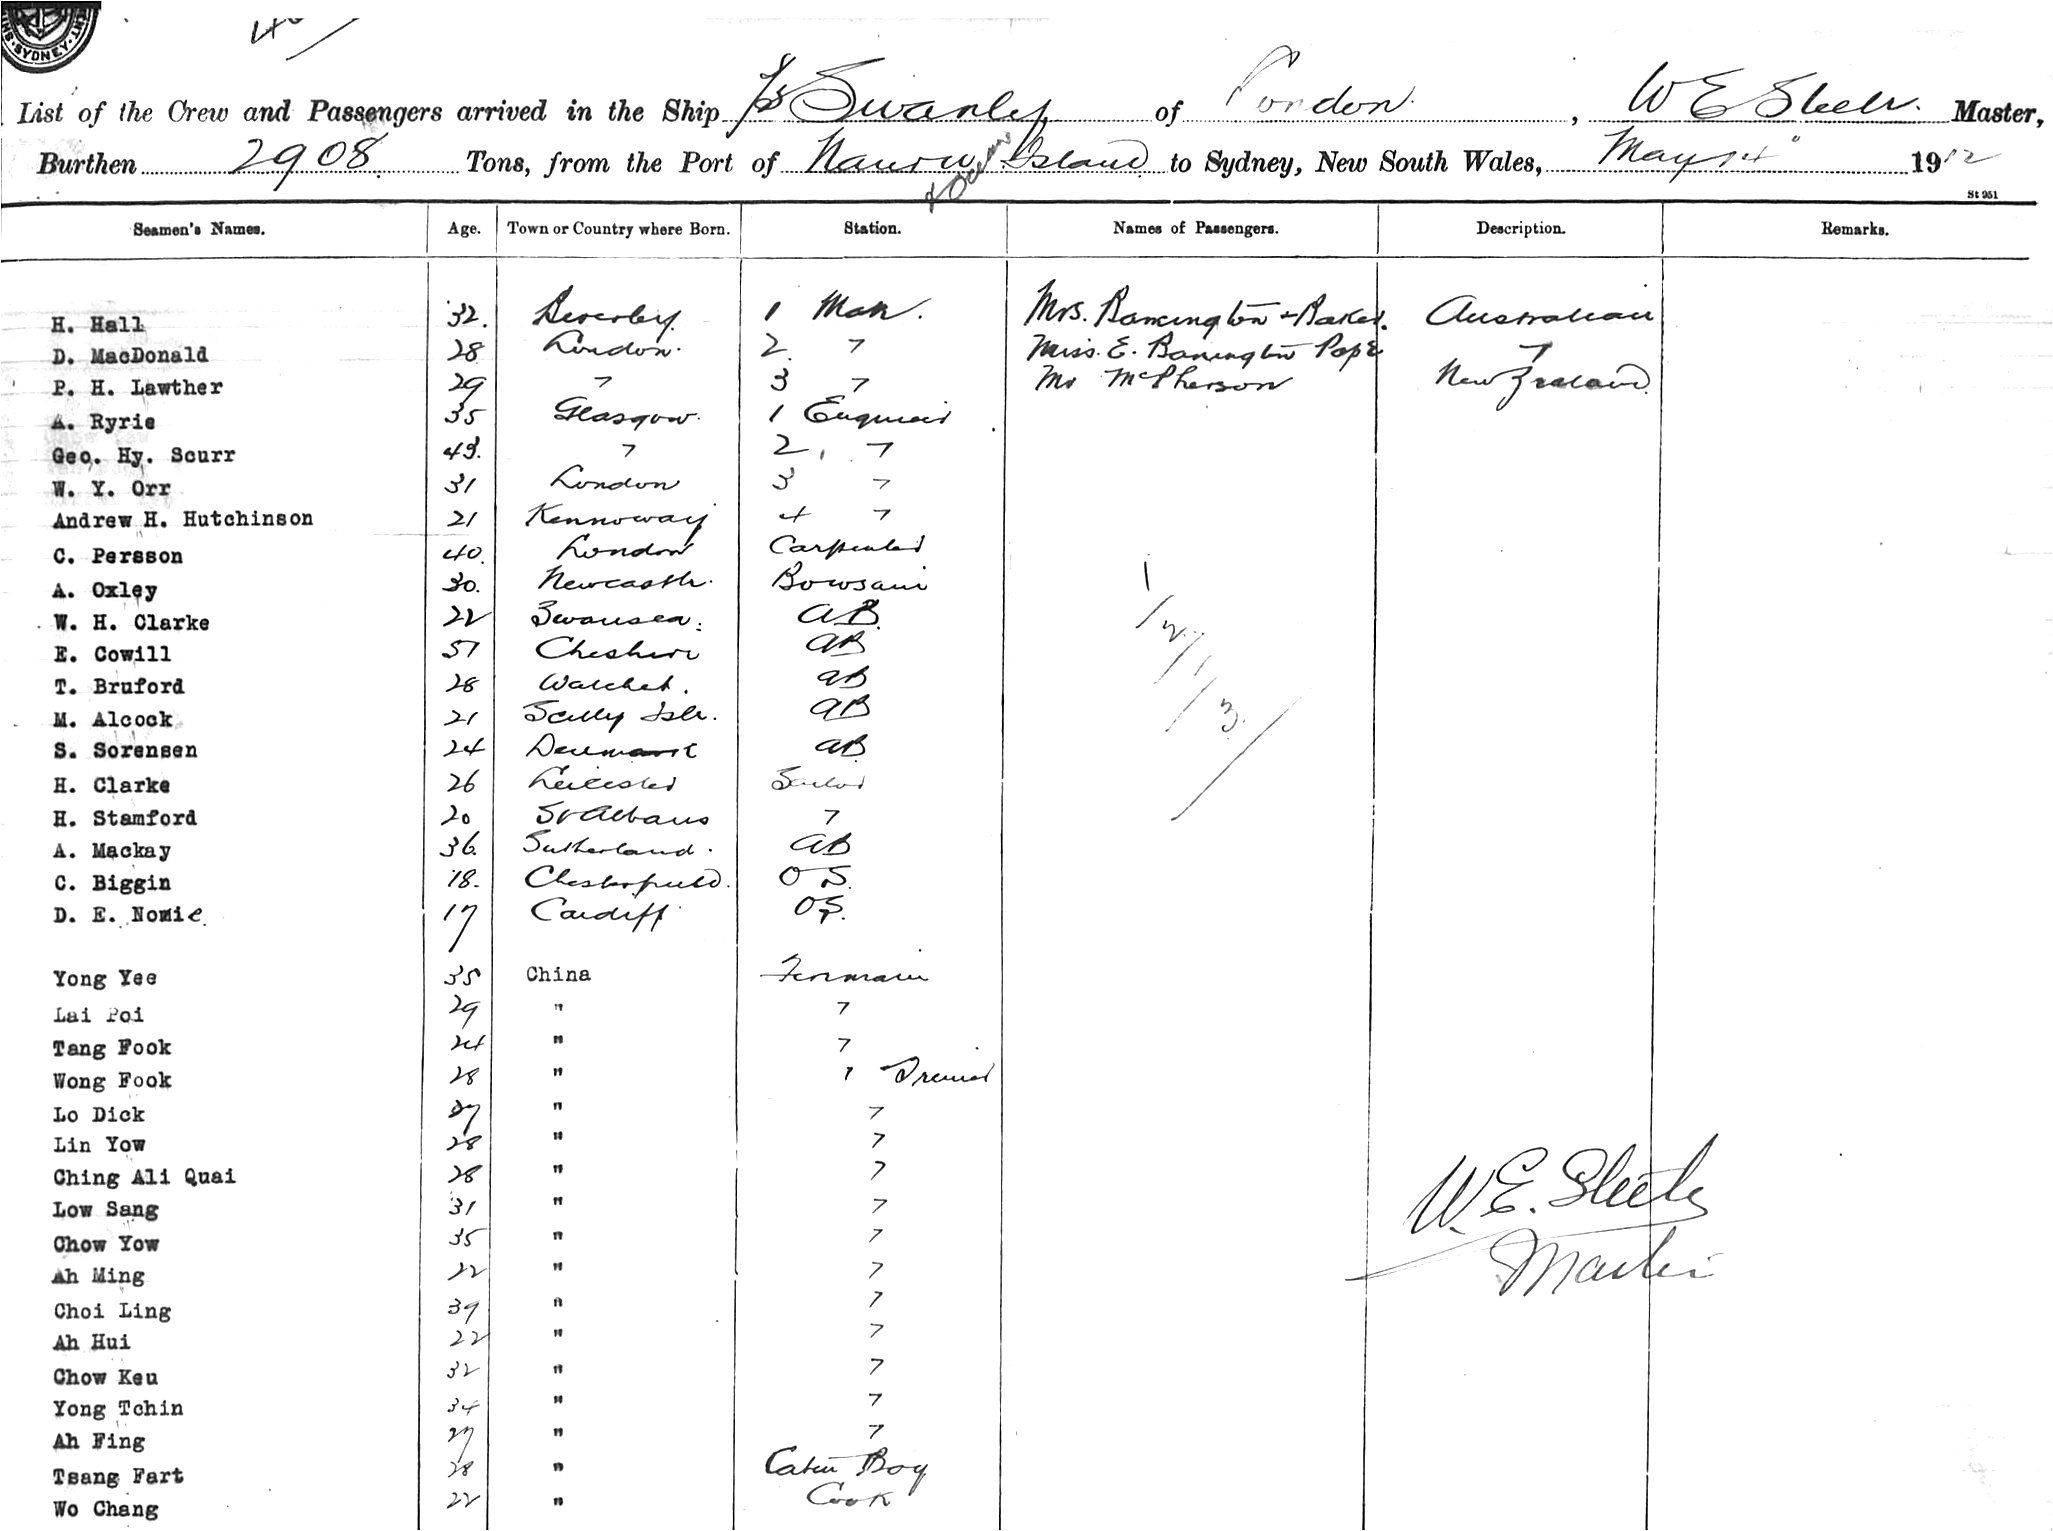 SYDNEY
List of the Crew and Passengers arrived in the Ship SS Swanley of London, W E Steele Master,
Burthen 2908 Tons, from the Port of Nauru & Ocean Island to Sydney, New South Wales, May 14 1912
St 951
Seamen's Names. Age. Town or Country where Born. Station. Names of Passengers. Description. Remarks.
H. Hall 32. Beverley 1 Mate. Mrs. Barrington + Baker. Australian
D. MacDonald 28 London. 2 " Miss. E. Barrington Pope "
P. H. Lawther 29 " 3 " Mr McPherson New Zealand
A. Ryrie 35 Glasgow. 1 Engineer
Geo. Hy. Scurr 43. " 2, "
W. Y. Orr 31 London 3 "
Andrew H. Hutchinson 21 Kennoway 4 "
C. Persson 40. London Carpenter
A. Oxley 30. Newcastle. Bowsain
W. H. Clarke 22 Swansea. AB.
E. Cowill 57 Cheshire AB
T. Bruford 28 Watchet. AB
M. Alcock 21 Scilly Isle. AB
S. Sorensen 24 Denmark AB
H. Clarke 26 Leicester Sailor
H. Stamford 20 St Albans "
A. Mackay 36. Sutherland. AB
C. Biggin 18. Chesterfield. O S.
D. E. Nomie 17 Cardiff OS.
1/2/1/3/
Yong Yee 35 China Firemain
Lai Poi 29 " "
Tang Fook 24 " "
Wong Fook 28 " 1
Lo Dick 27 " "
Lin Yow 28 " "
Ching Ali Quai 28 " "
Low Sang 31 " "
Chow Yow 35 " "
Ah Ming 22 " "
Choi Ling 39 " "
Ah Hui 22 " "
Chow Keu 32 " "
Yong Tchin 34 " "
Ah Fing 27 " "
Tsang Fart 28 " Cabin Boy
Wo Chang 22 " Cook
W. E. Steele
Master